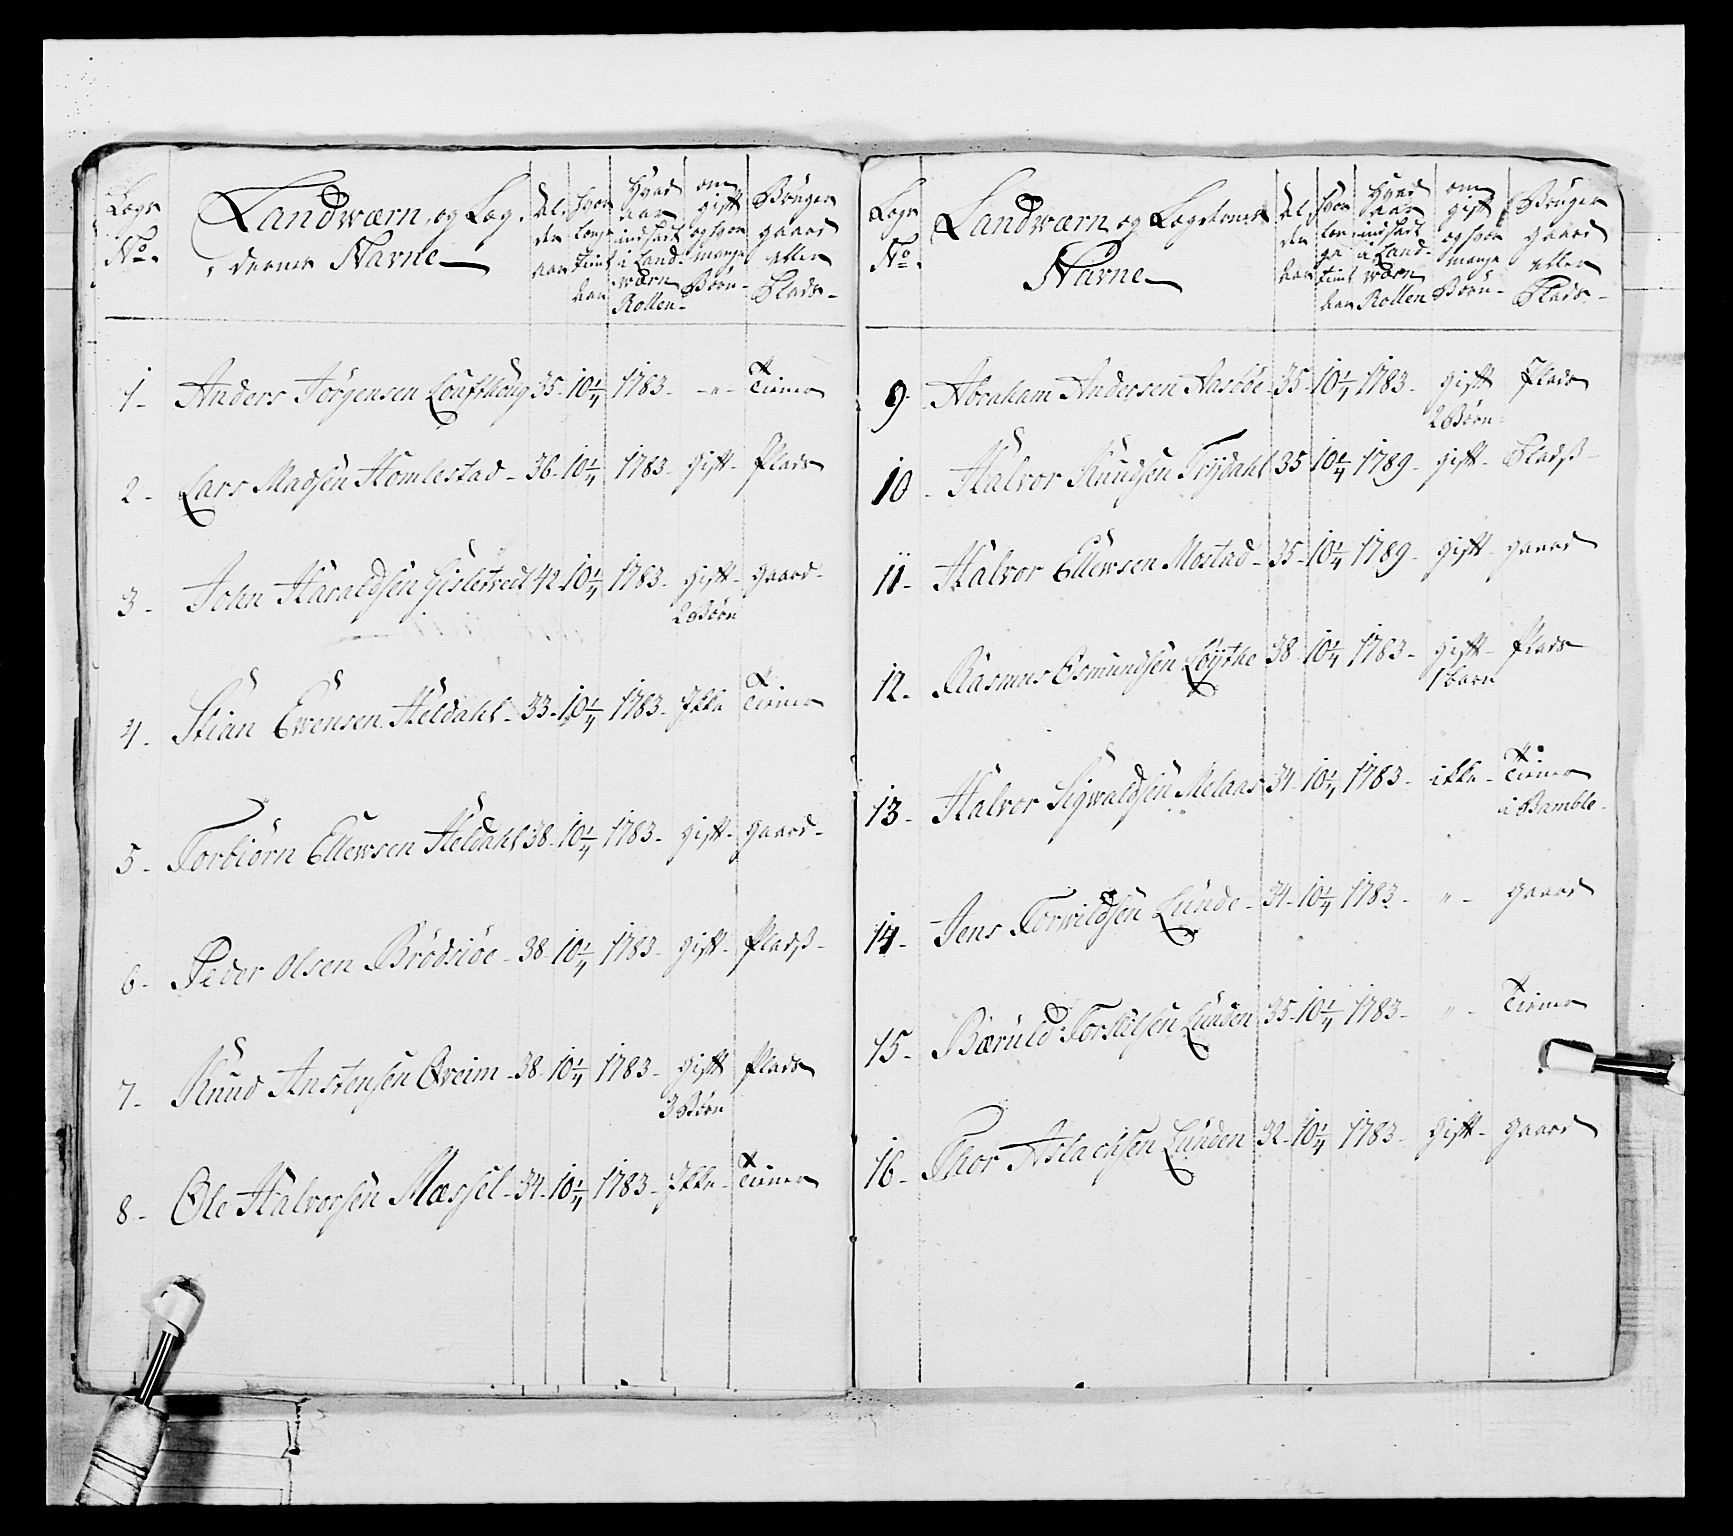 Legs No.
Landwærn og Leg-
dernes Navne
Al-
der
aar
hvor
længe
tient
aar
Hvad
aar
indsadt
i Land-
wærn
Rollen-
om
gift
og hvor
mange
Børn-
Bruger
gaard
eller
Plads-
1- Anders Jörgensen 35- 10 1/4 1783- -"- Tiener
2- Lars Madsen Homlestad- 36- 10 1/4 1783- gift- Plads
3- John Haraldsen 42- 10 1/4 1783- gift- gaard-
2 Børn
4- Stian Ewensen Heldahl- 33- 10 1/4 1783- Ikke Tiener
5- Torbiørn Ellewsen Heldahl 38- 10 1/4 1783- gift- gaard-
6- Peder Olsen Brödsiöe- 38- 10 1/4 1783- gift- Pladß-
7- Knud Anstensen Qveim- 38- 10 1/4 1783- gift Plads
3 Børn
8- Ole Halvorsen Mæssel- 34- 10 1/4 1783- Ikke- Tiener
Legs No.
Landwærn og Legdernes
Navne
Al-
der
aar
hvor
læn-
ge
tient
aar
Hvad
aar
indsadt
i Land-
wærn
Rollen
om
gift
og hvor
mange
Børn-
Bruger
gaard
eller
Plads-
9- Abraham Andersen Aasböe- 35- 10 1/4 1783- gift Plads
2 Børn-
10- Halvor Knudsen Trydahl 35 10 1/4 1789- gift- Pladß-
11- Halvor Ellewsen Mostad- 35- 10 1/4 1789- gift- gaard
12- Rasmus Osmundsen Löythe 38 10 1/4 1783- gift- Plads
1 barn
13- Halvor Sigwaldsen Melaas 34 10 1/4 1783- ikke- Tiener
i Bamble-
14- Jens Torwildsen Lunde- 34- 10 1/4 1783- "- gaard
15- Bæruld Torkilsen Lunden 35- 10 1/4 1783- "- Tiener
16- Thor Aslachsen Lunden 32- 10 1/4 1783- gift- gaard